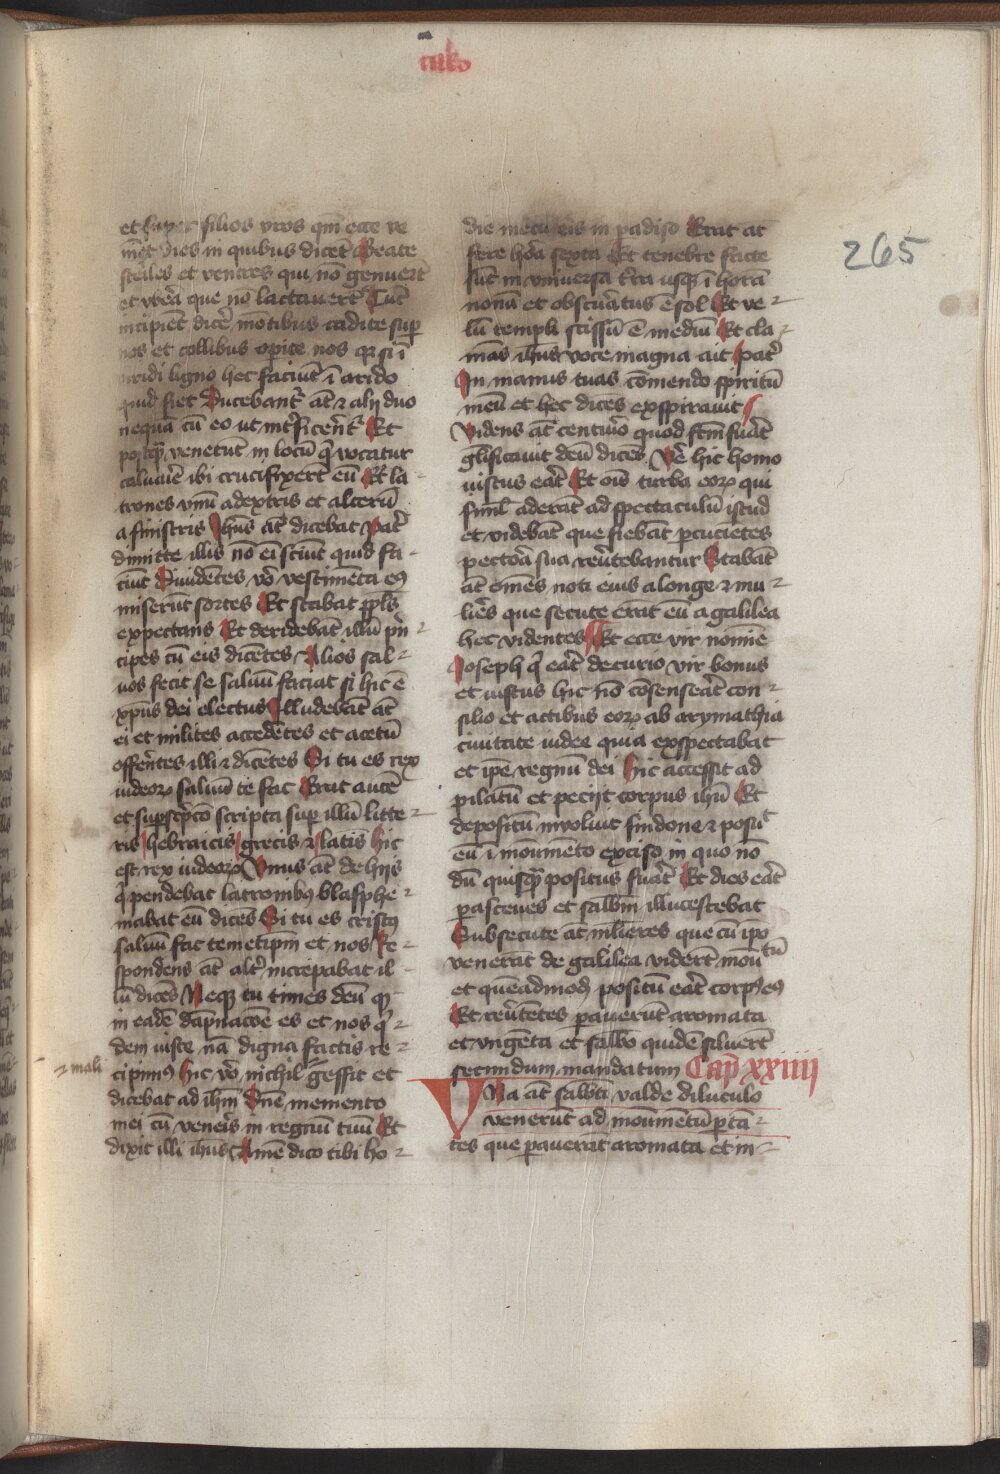 cuko
265
et super filios vros qm̄ ecce ve
niēt dies in quibus dicēt Beate
steriles et ventres qui nō genuert̄
et vbēa que nō lactauerūt Tūc
incipiēt dicē mōtibus cadite sup̄
nos et collibus operite nos q̄ si ī
viridi ligno hec faciūt ī arido
quid fiet Ducebant̄ at̄ ⁊ alij duo
nequā cū eo ut int̄ficēnt̄ Et
postq̄ venerūt in locū q̄ vocatur
caluaīe ibi crucifixerūt eū Et la⸗
trones vnū adextris et alterū
a sinistris Jhūs at̄ dicebat Pat̄
dimitte illis nō ēī sciūt quid fa⸗
ciūt Diuidētes vō vestimēta eꝰ
miserūt sortes Et stabat ppl̄s
expectans Et deridebāt illū pn̄⸗
cipes cū eis dicētes Alios sal⸗
uos fecit se saluū faciat si hic ē
xpūs dei electus Illudebāt at̄
ei et milites accedētes et acetū
offerētes illi ⁊ dicētes Si tu es rex
iudeoꝝ saluū te fac Erat autē
et supsc̄pc̄o scripta sup illū litte⸗
ris hebraicis grecis ⁊ latīs hic
est rex iudeoꝝ Vnus at̄ de hijs
q̄ pendebāt latronibꝰ blasphe⸗
mabat eū dicēs Si tu es cristꝰ
saluū fac temetip̄m et nos Re⸗
spondens at̄ alt̄ increpabat il⸗
lū dicēs Neqꝫ tu times deū qꝫ
in eadē dāpnacōe es et nos q̄⸗
dem iuste nā digna factis re⸗
⁊ mali
cipimꝰ hic vō nichil gessit et
dicebat ad ih̄m Dn̄e memento
mei cū venēis in regnū tuū Et
dixit illi ihūs Amē dico tibi ho⸗
die mecū eris in padiso Erat at̄
fere hōa sexta Et tenebre facte
sūt in vniuersa t̄ra usqꝫ ī horā
nonā et obscuratus ē sol Et ve⸗
lū templi scissū ē mediū Et cla⸗
mās ihūs voce magna ait Pat̄
In manus tuas cōmendo spiritū
meū et hec dicēs expirauit
Videns at̄ centurio quod fc̄m fuāt̄
gl̄ificauit deū dicēs Vē hic homo
iustus eāt̄ Et oīs turba eoꝝ qui
siml̄ aderāt ad spectaculū istud
et videbāt que fiebāt pcucietes
pectōa sua reūtebantur Stabāt
at̄ omēs noti eius alonge ⁊ mu⸗
liēs que secute erāt eū a galilea
hec videntes Et ecce vir nomīe
Joseph q̄ eāt̄ decurio vir bonus
et iustus hic nō cōsenseāt̄ con⸗
silio et actibus eoꝝ ab arymathia
ciuitate iudee quia exspectabat
et ip̄e regnū dei hic accessit ad
pilatū et pecijt corpus ihū Et
depositū inuoluit sindone ⁊ posuᵗ
eū ī monumēto exciso in quo nō
dū quisq̄ positus fuāt̄ Et dies eāt̄
parasceues et sabbm̄ illucescebat
Subsecute at̄ mlieres que cū ipo
venerāt de galilea viderūt monutū
et quēadmodꝫ positū eāt̄ corpꝰ eꝰ
Et reūtētes parauerūt aromata
et vngēta et sabbō quidē siluerūt
secundum mandatum Cap̄ xxiiii
Vna at̄ sabbti valde diluculo
venerūt ad monumētū portā⸗
tes que parauerāt aromata et in⸗